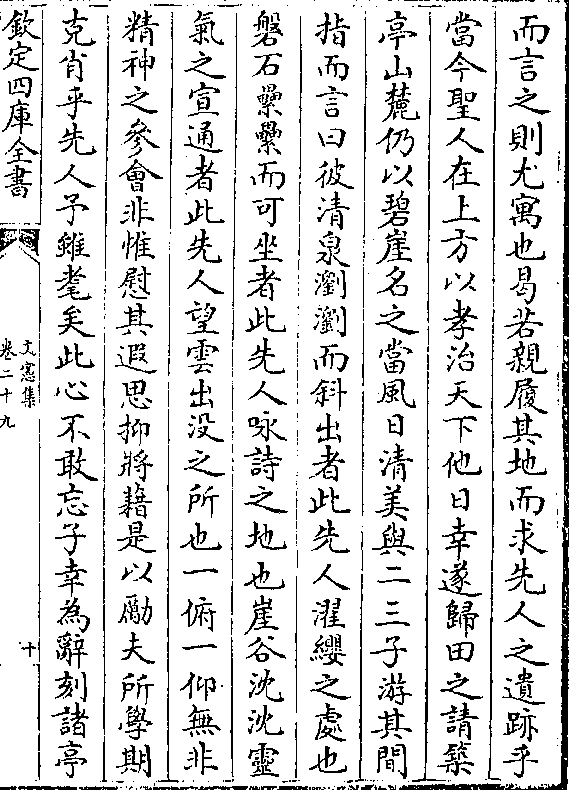 而言之則尤寓也曷若親履其地而求先人之遺跡乎
當今聖人在上方以孝治天下他日幸遂歸田之請築
亭山麓仍以碧崖名之當風日清美與二三子游其間
指而言曰彼清泉瀏瀏而斜出者此先人濯纓之處也
磐石纍纍而可坐者此先人咏詩之地也崖谷沈沈靈
氣之宣通者此先人望雲出没之所也一俯一仰無非
精神之參會非惟慰其遐思抑將藉是以勵夫所學期
克肖乎先人予雖耄矣此心不敢忘子幸為辭刻諸亭
欽定四庫全書
文憲集
卷二十九
十